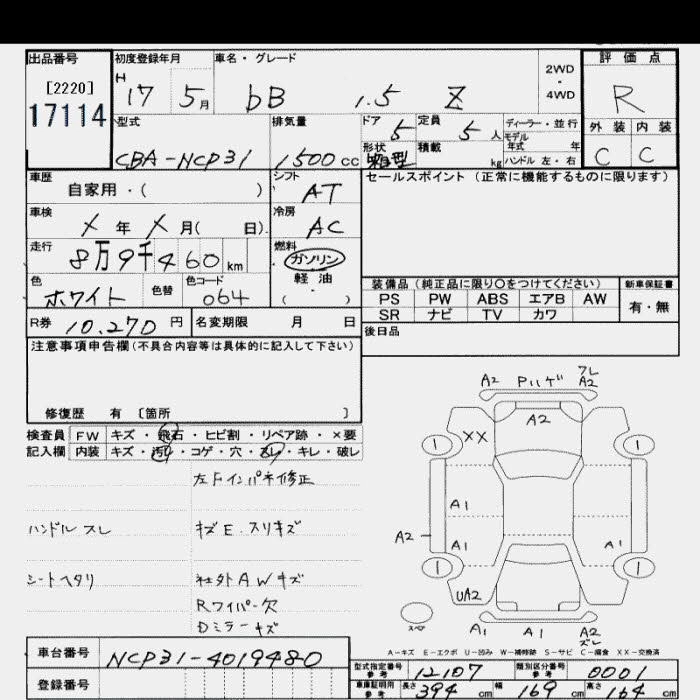 出品番号
[2220]
17114
初度登録年月
H 17 5 月
車名・グレード
bB 1.5 Z
2WD
・
4WD
評価点
R
外装 内装
C C
型式
CBA-NCP31
排気量
1500 cc
ドア
5
定員
5 人
ディーラー・並行
モデル
年式 年
形状
積載
kg
ハンドル 左・右
車歴
自家用・( )
シフト
AT
セールスポイント (正常に機能するものに限ります)
車検
X 年 X 月( 日)
冷房
AC
走行
8万9千460 km
燃料
ガソリン
軽油
・
( )
色
ホワイト
色替
色コード
064
装備品 (純正品に限り○をつけてください)
新車保証書
PS PW ABS エアB AW
SR ナビ TV カワ
有・無
R券 10,270 円
名変期限 月 日
後日品
注意事項申告欄(不具合内容等は具体的に記入して下さい)
修復歴 有 [箇所 ]
検査員 FW キズ・飛石・ヒビ割・リペア跡・×要
記入欄 内装 キズ・汚れ・コゲ・穴・スレ・キレ・破レ
左Fインパネ修正
ハンドル スレ
キズ E. スリキズ
シートヘタリ
社外AWキズ
Rワイパー欠
Dミラーキズ
A2 Pハゲ フレ
A2
A2
XX
1 1
A1
A2
A1 A1
1 1
UA2
スペア
A1 A1 A2
ズレ
A-キズ E-エクボ U-凹み W-補修跡 S-サビ C-腐食 XX-交換済
車台番号 NCP31-4019480
登録番号
型式指定番号
参考
12107
類別区分番号
参考
0001
車庫証明用
参考
長さ 394 cm 幅 169 cm 高さ 164 cm